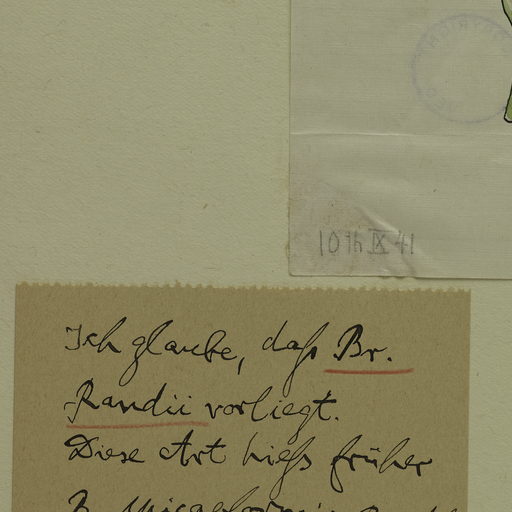 10th IX 41
Ich glaube, daß Br.
Randii vorliegt.
Diese Art hieß früher